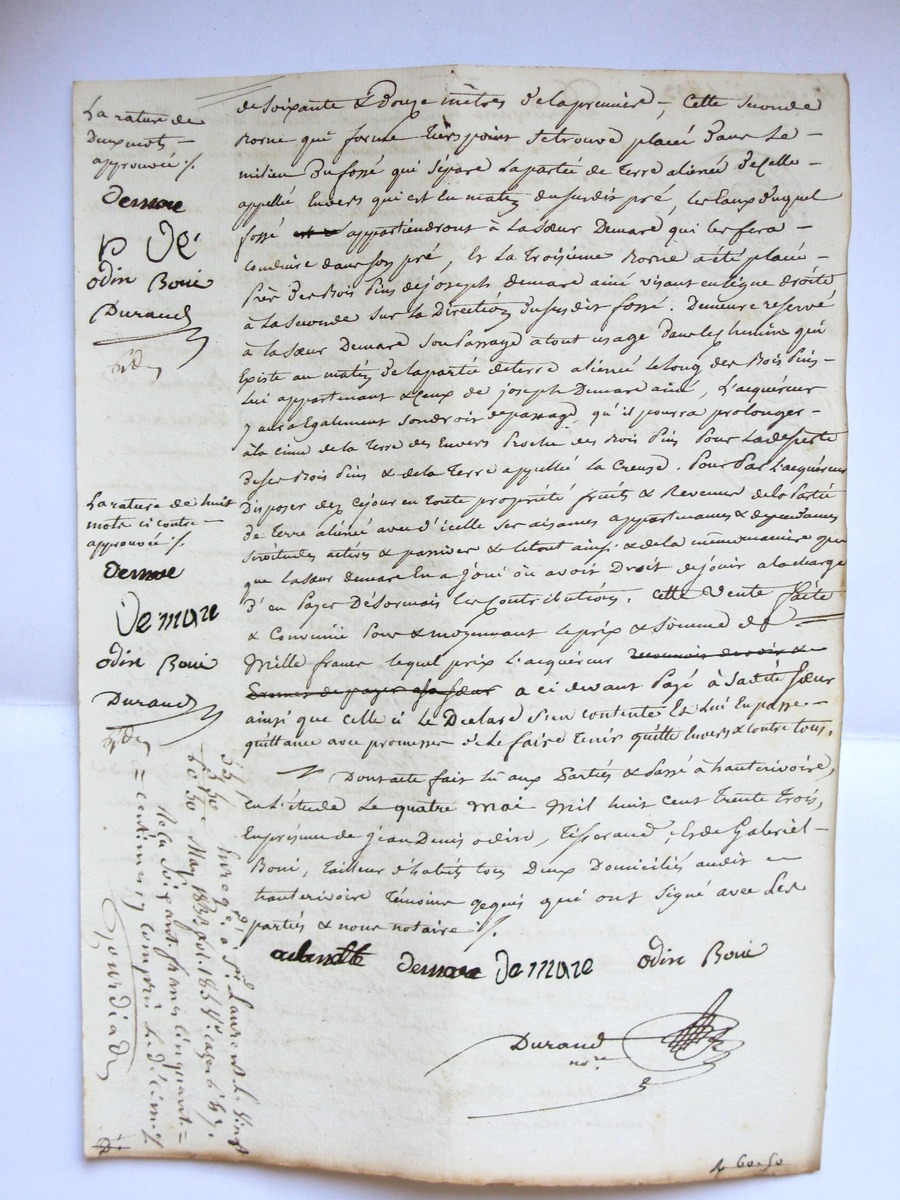 de soixante & douze mètres de la première, Cette seconde
Borne qui forme tiers point se trouve placée dans le
milieu du fossé qui sépare la partie de terre aliénée de celle
appellé Envers qui est en matin du susdit pré, les Eaux duquel
fossé appartiendront à la Sœur Demare qui les fera
Conduire dans son pré, & la Troisième Borne a été placée
Près des Bois Pins de joseph demare ainé visant en ligne droite
à la seconde sur la Direction du susdit fossé. Demeure réservé
à la Sœur Demare son Passage a tout usage dans le chemin qui
Existe au matin de la partie de terre aliénée le long des Bois Pins
Lui appartenant & ceux de joseph Demare ainé, L'acquéreur
y aura Egalement son droit de passage, qu'il pourra prolonger
à la cime de la Terre des Envers Proche des Bois Pins Pour la desserte
de ses Bois Pins & de la Terre appellée La Creuse. Pour Par L'acquéreur
Disposer dez cejour en toute propriété fruits & Revenus de la Partie
de Terre aliénée avec d'icelle ses aisances appartenances & dependances
servitudes actives & passives & le tout ainsi & de la même manière que
que la Sœur demare En a joui ou avoit Droit de jouir a la charge
d'en Payer Désormais les Contributions. Cette Vente faite
& Convenue Pour & moyennant le prix & Somme de
Mille francs lequel prix L'acquéreur reconnois devoir &
Promet de payer a sa Sœur a ci devant Payé à Sadite Sœur
ainsi que celle ci Le Déclare s'en contente Et Lui En passe
quittance avec promesse de Le faire Tenir quitte Envers & contre tous.
Dont acte fait Lu aux Parties & Passé à hauterivoire,
En L'étude Le quatre Mai Mil huit Cent Trente Trois,
En présence de jean Denis odin, Tisserand, & de Gabriel
Boué, Tailleur d'habits tous Deux Domiciliés audit
hauterivoire Témoins requis qui ont Signé avec Les
parties & nous notaire ./.
demare Demare odin Boué
Durand
nre
La rature de
Deux mots
approuvée ./.
demare
De
odin Boué
Durand
La rature de huit
mots ci contre
approuvée ./.
demare
Demare
odin Boué
Durand
55,,
5,, 50
60 50
Enregé. à St. Laurent le Vingt
Mai 1833 fol. 185 Vo. cazes 6 & 7.
Reçu Soixante francs cinquante
centimes y compris Le décime ./.
Gourdiad
De
60-50